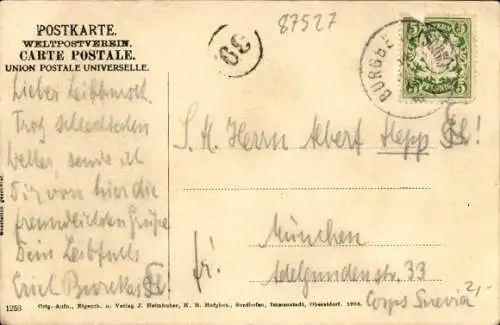 POSTKARTE.
WELTPOSTVEREIN.
CARTE POSTALE.
UNION POSTALE UNIVERSELLE.
87527
39
BURGBE
5
5
Lieber Leibbursch.
Trotz schlechtesten
Wetter, sende ich
Dir von hier die
freundlichsten Grüße
Dein Leibfuchs
Erich
S. H. Herrn Albert Hepp
München
fr.
Adelgundenstr. 33
Corps Suevia
2,-
1253
Orig.-Aufn., Eigenth. u. Verlag J. Heimhuber, K. B. Hofphot., Sonthofen, Immenstadt, Oberstdorf. 1904.